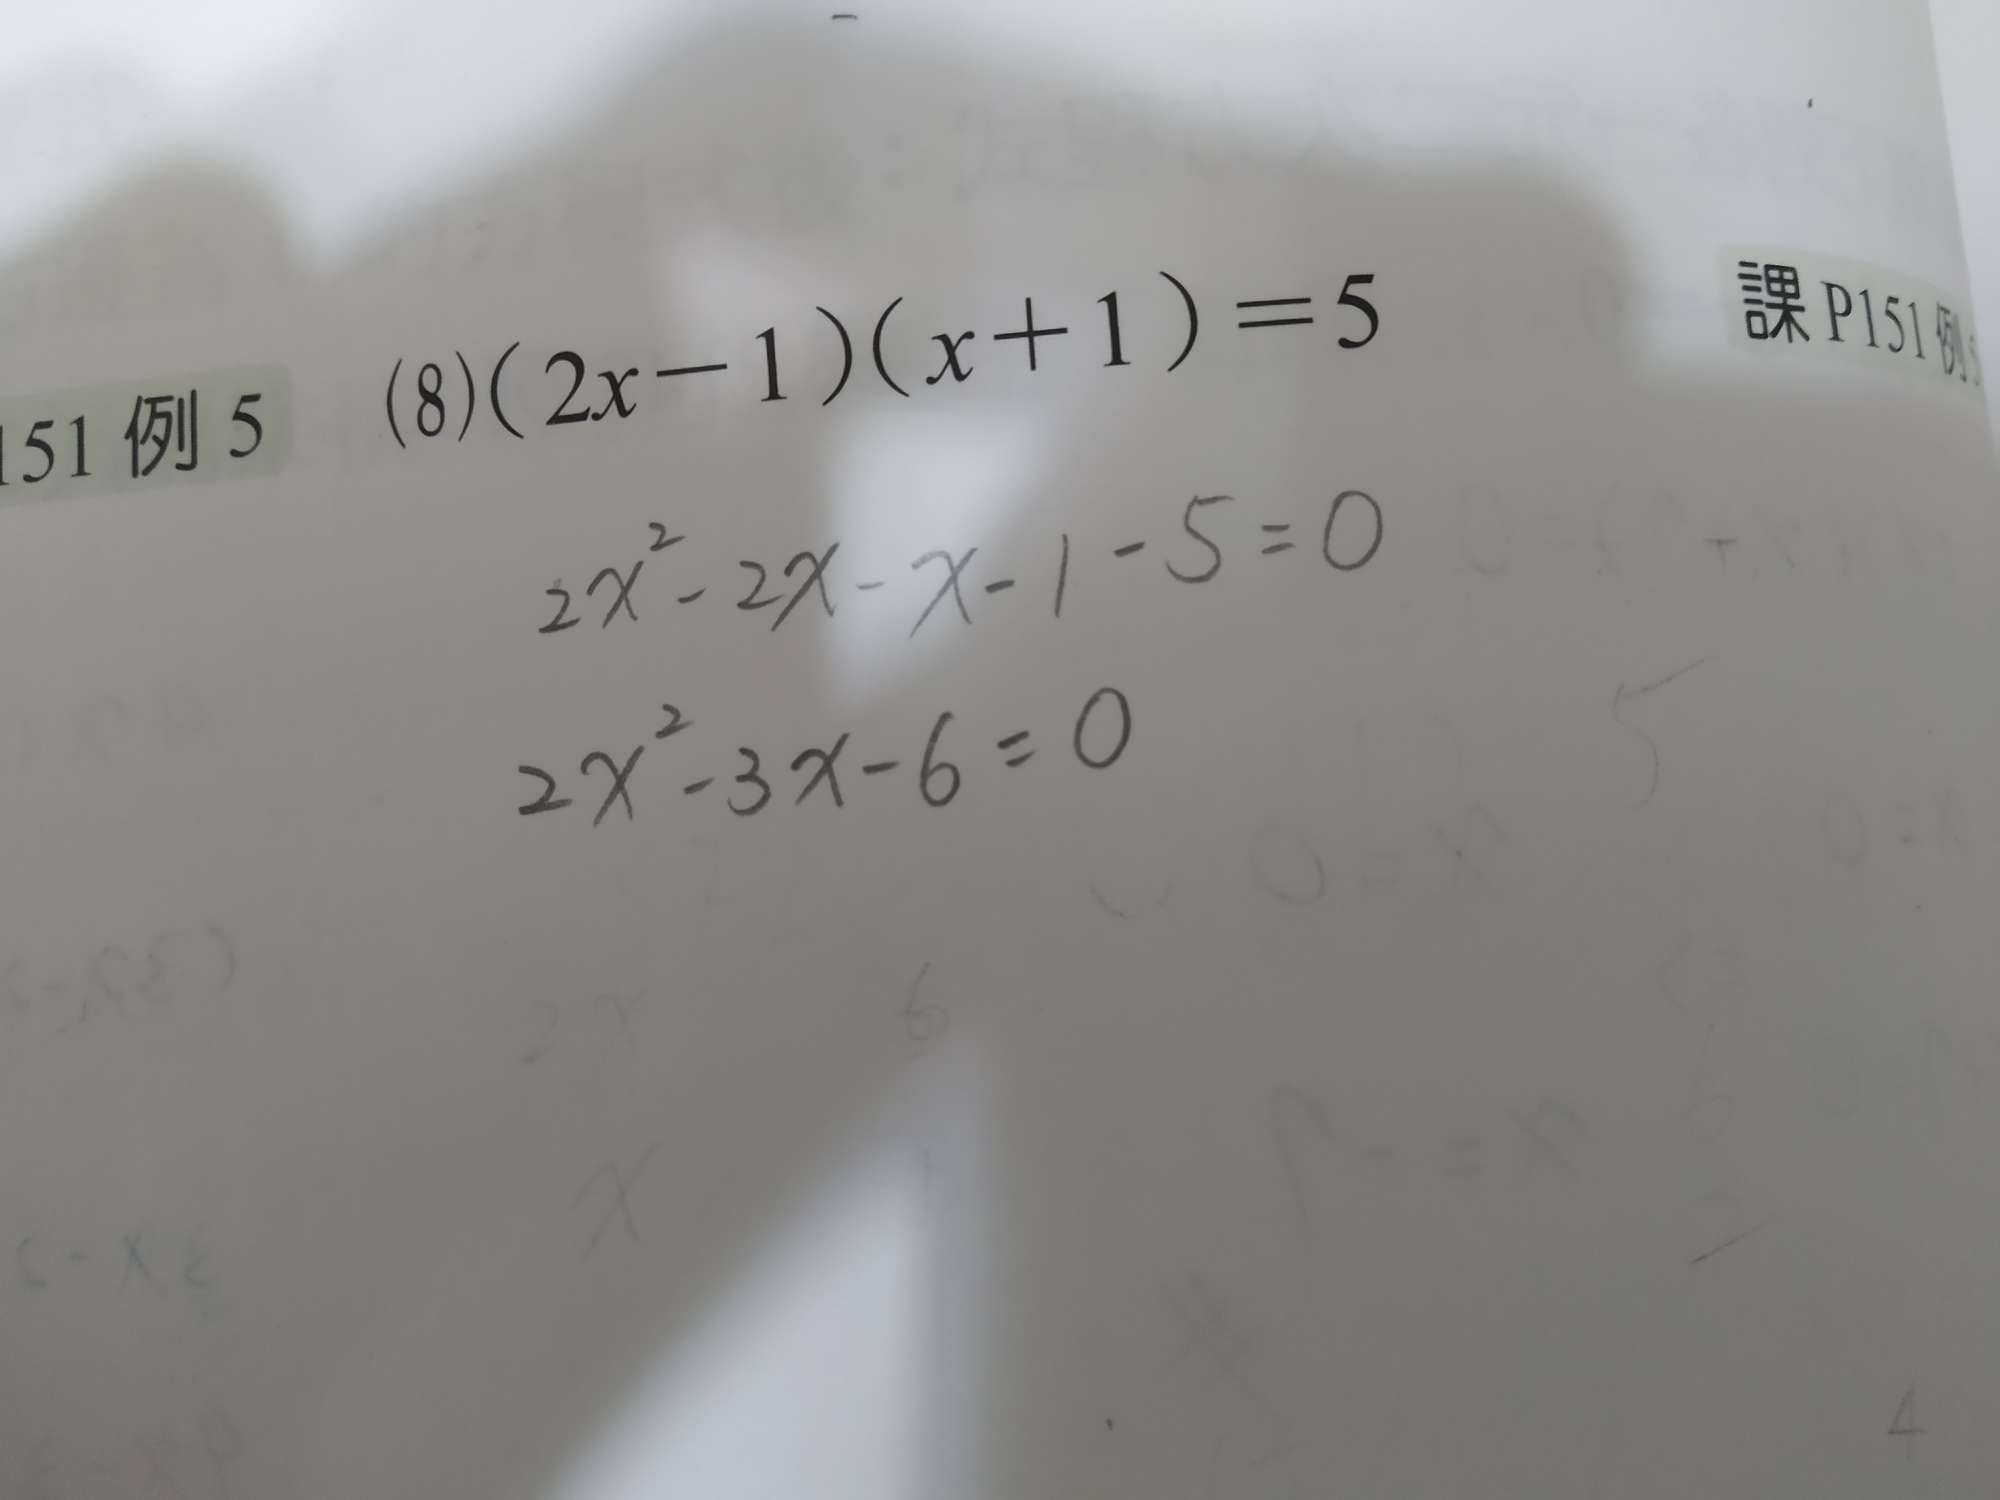 151 例 5 (8)(2x－1)(x＋1)＝5 課 P151 例 5
2x²-2x-x-1-5=0
2x²-3x-6=0
5
2x 6
x
4